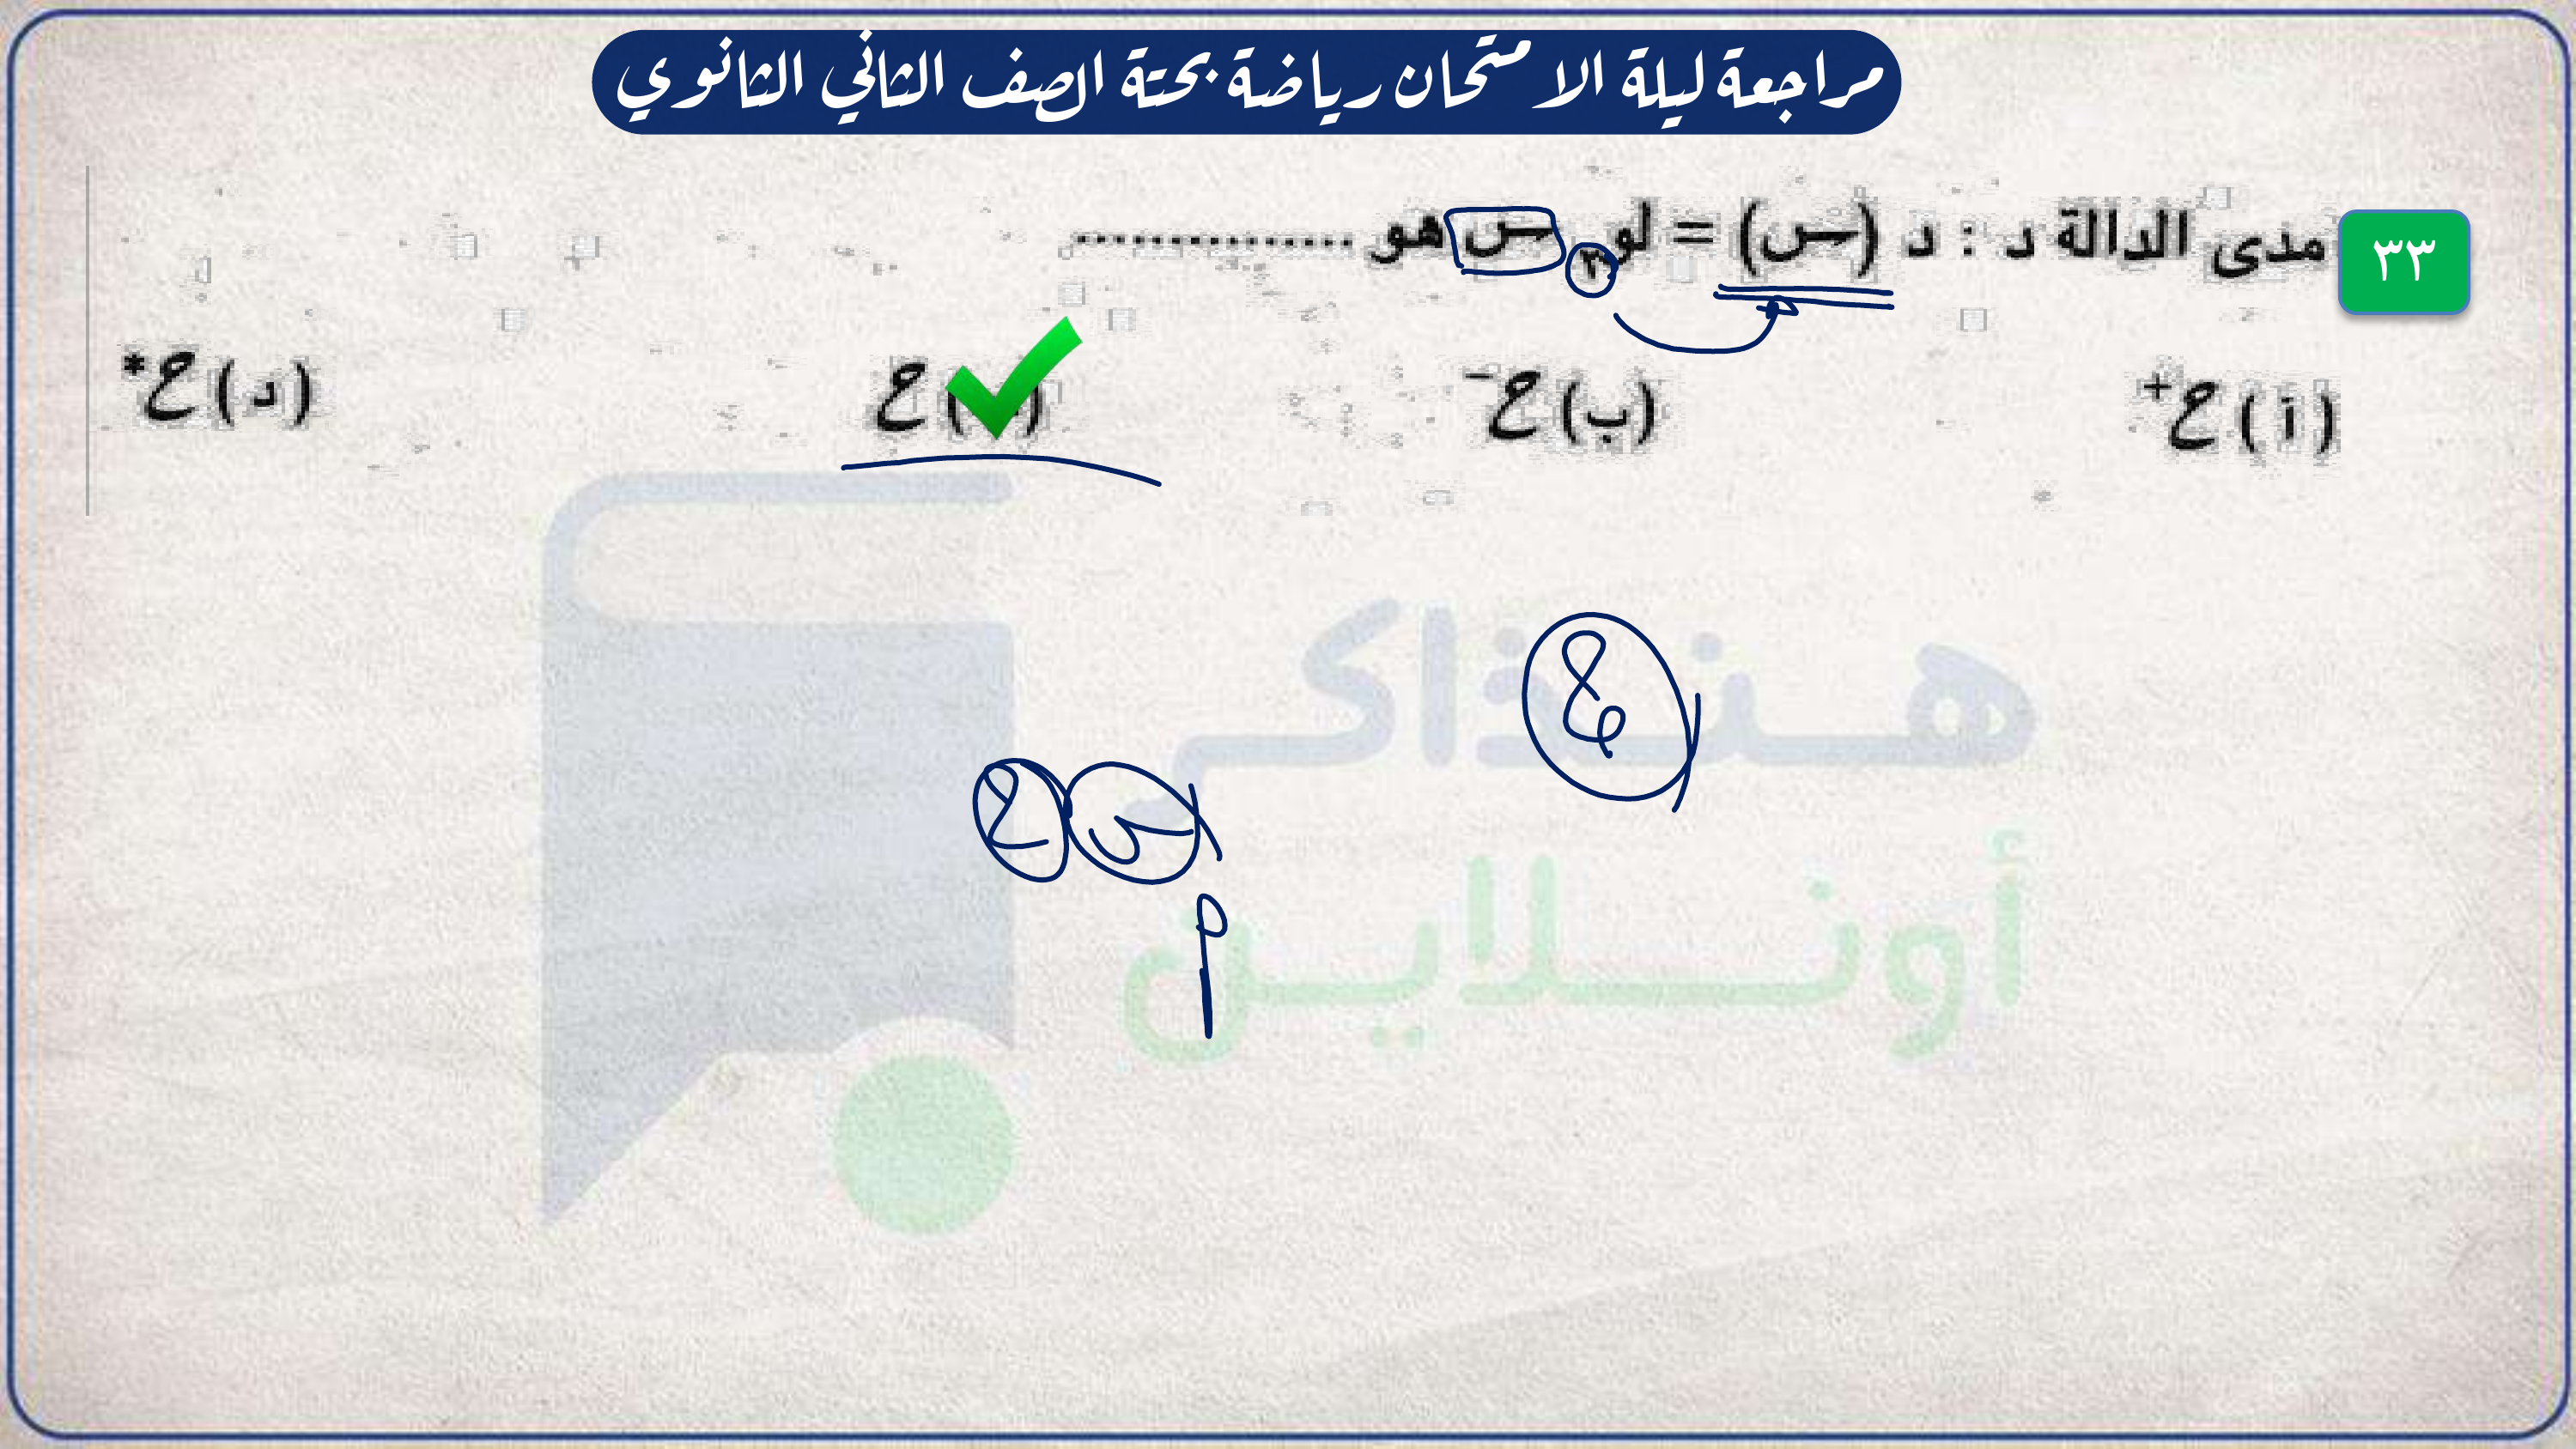 مراجعة ليلة الامتحان رياضة بحتة الصف الثاني الثانوي
٣٣ مدى الدالة د : د (س) = لو٣ س هو ................
(أ) ح+ (ب) ح− ( ) ح (د) ح*
هنذاكر
أونلاين